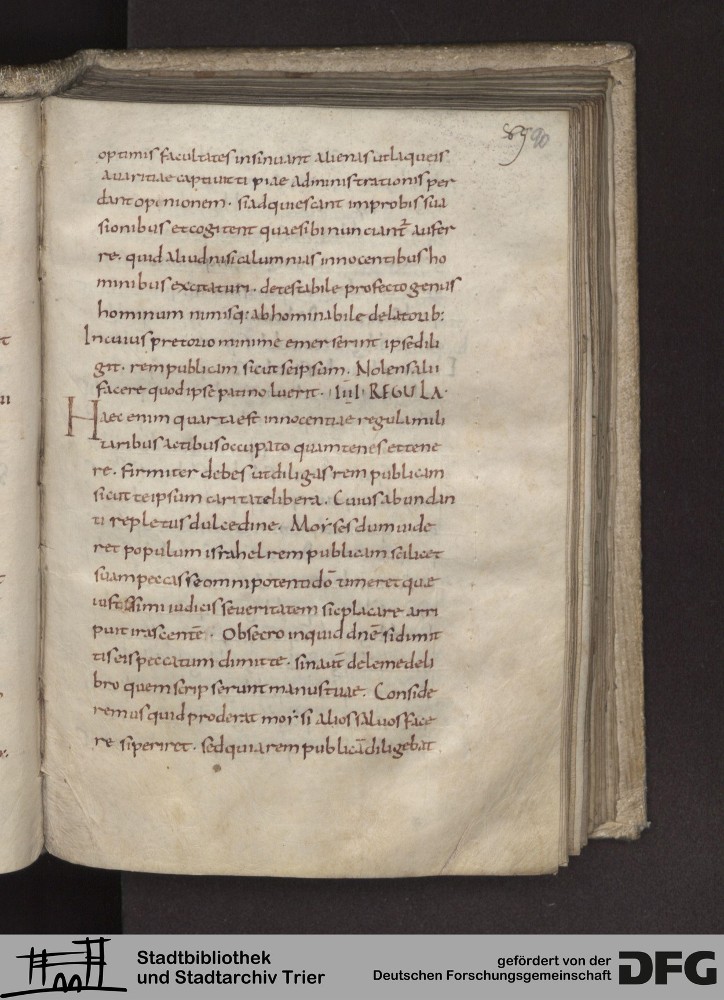 90
optimis facultates insinuant alienas ut laqueis
avaritiae captivati piae administrationis per
dant opinionem. si adquiescant improbis sua
sionibus et cogitent quae sibi nunciant᷑ aufer
re. quid aliud nisi calumnias innocentibus ho
minibus excitatur. detestabile profecto genus
hominum nimisq: abhominabile delatorib:
In cuius pretorio minime emerserint ipse dili
git. rem publicam sicut se ipsum. Nolens alii
facere quod ipse pati noluerit. IIII REGULA.
Haec enim quarta est innocentiae regula mili
taribus actibus occupato quam tenes et tene
re. firmiter debes ut diligas rem publicam
sicut te ipsum caritate libera. Cuius abundan
ti repletus dulcedine. Moyses dum vide
ret populum israhel rem publicam scilicet
suam peccasse omnipotenti dō timeret quae
iustissimi iudicis severitatem sic placare arri
puit irascentē. Obsecro inquid dnē si dimit
tis eis peccatum dimitte. sin aūt dele me de li
bro quem scripserunt manus tuae. Conside
remus quid proderat moysi alios salvos face
re si periret. sed quia rem publicā diligebat
Stadtbibliothek
und Stadtarchiv Trier
gefördert von der
Deutschen Forschungsgemeinschaft
DFG